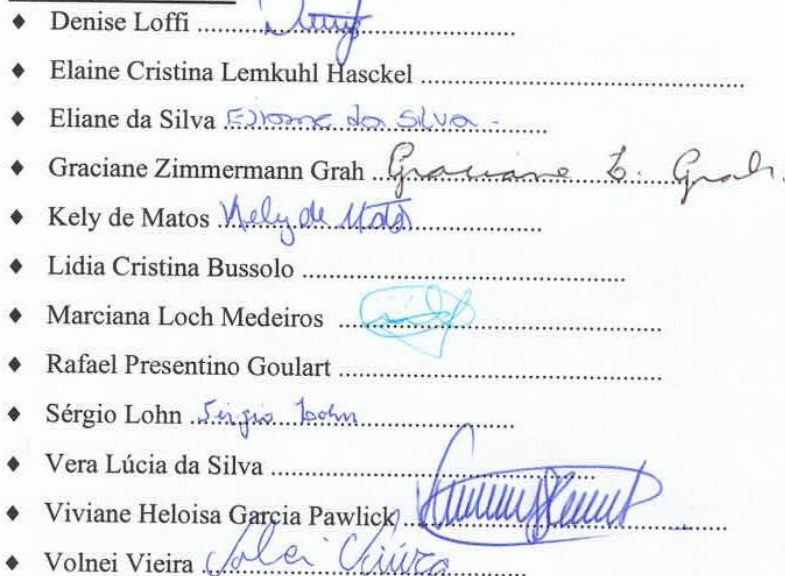 ♦ Denise Loffi ..........................................
♦ Elaine Cristina Lemkuhl Hasckel ..........................................
♦ Eliane da Silva Eliane da Silva -
♦ Graciane Zimmermann Grah Graciane Z. Grah.
♦ Kely de Matos Kely de Matos
♦ Lidia Cristina Bussolo ..........................................
♦ Marciana Loch Medeiros ..........................................
♦ Rafael Presentino Goulart ..........................................
♦ Sérgio Lohn Sérgio Lohn
♦ Vera Lúcia da Silva ..........................................
♦ Viviane Heloisa Garcia Pawlick ..........................................
♦ Volnei Vieira Volnei Vieira